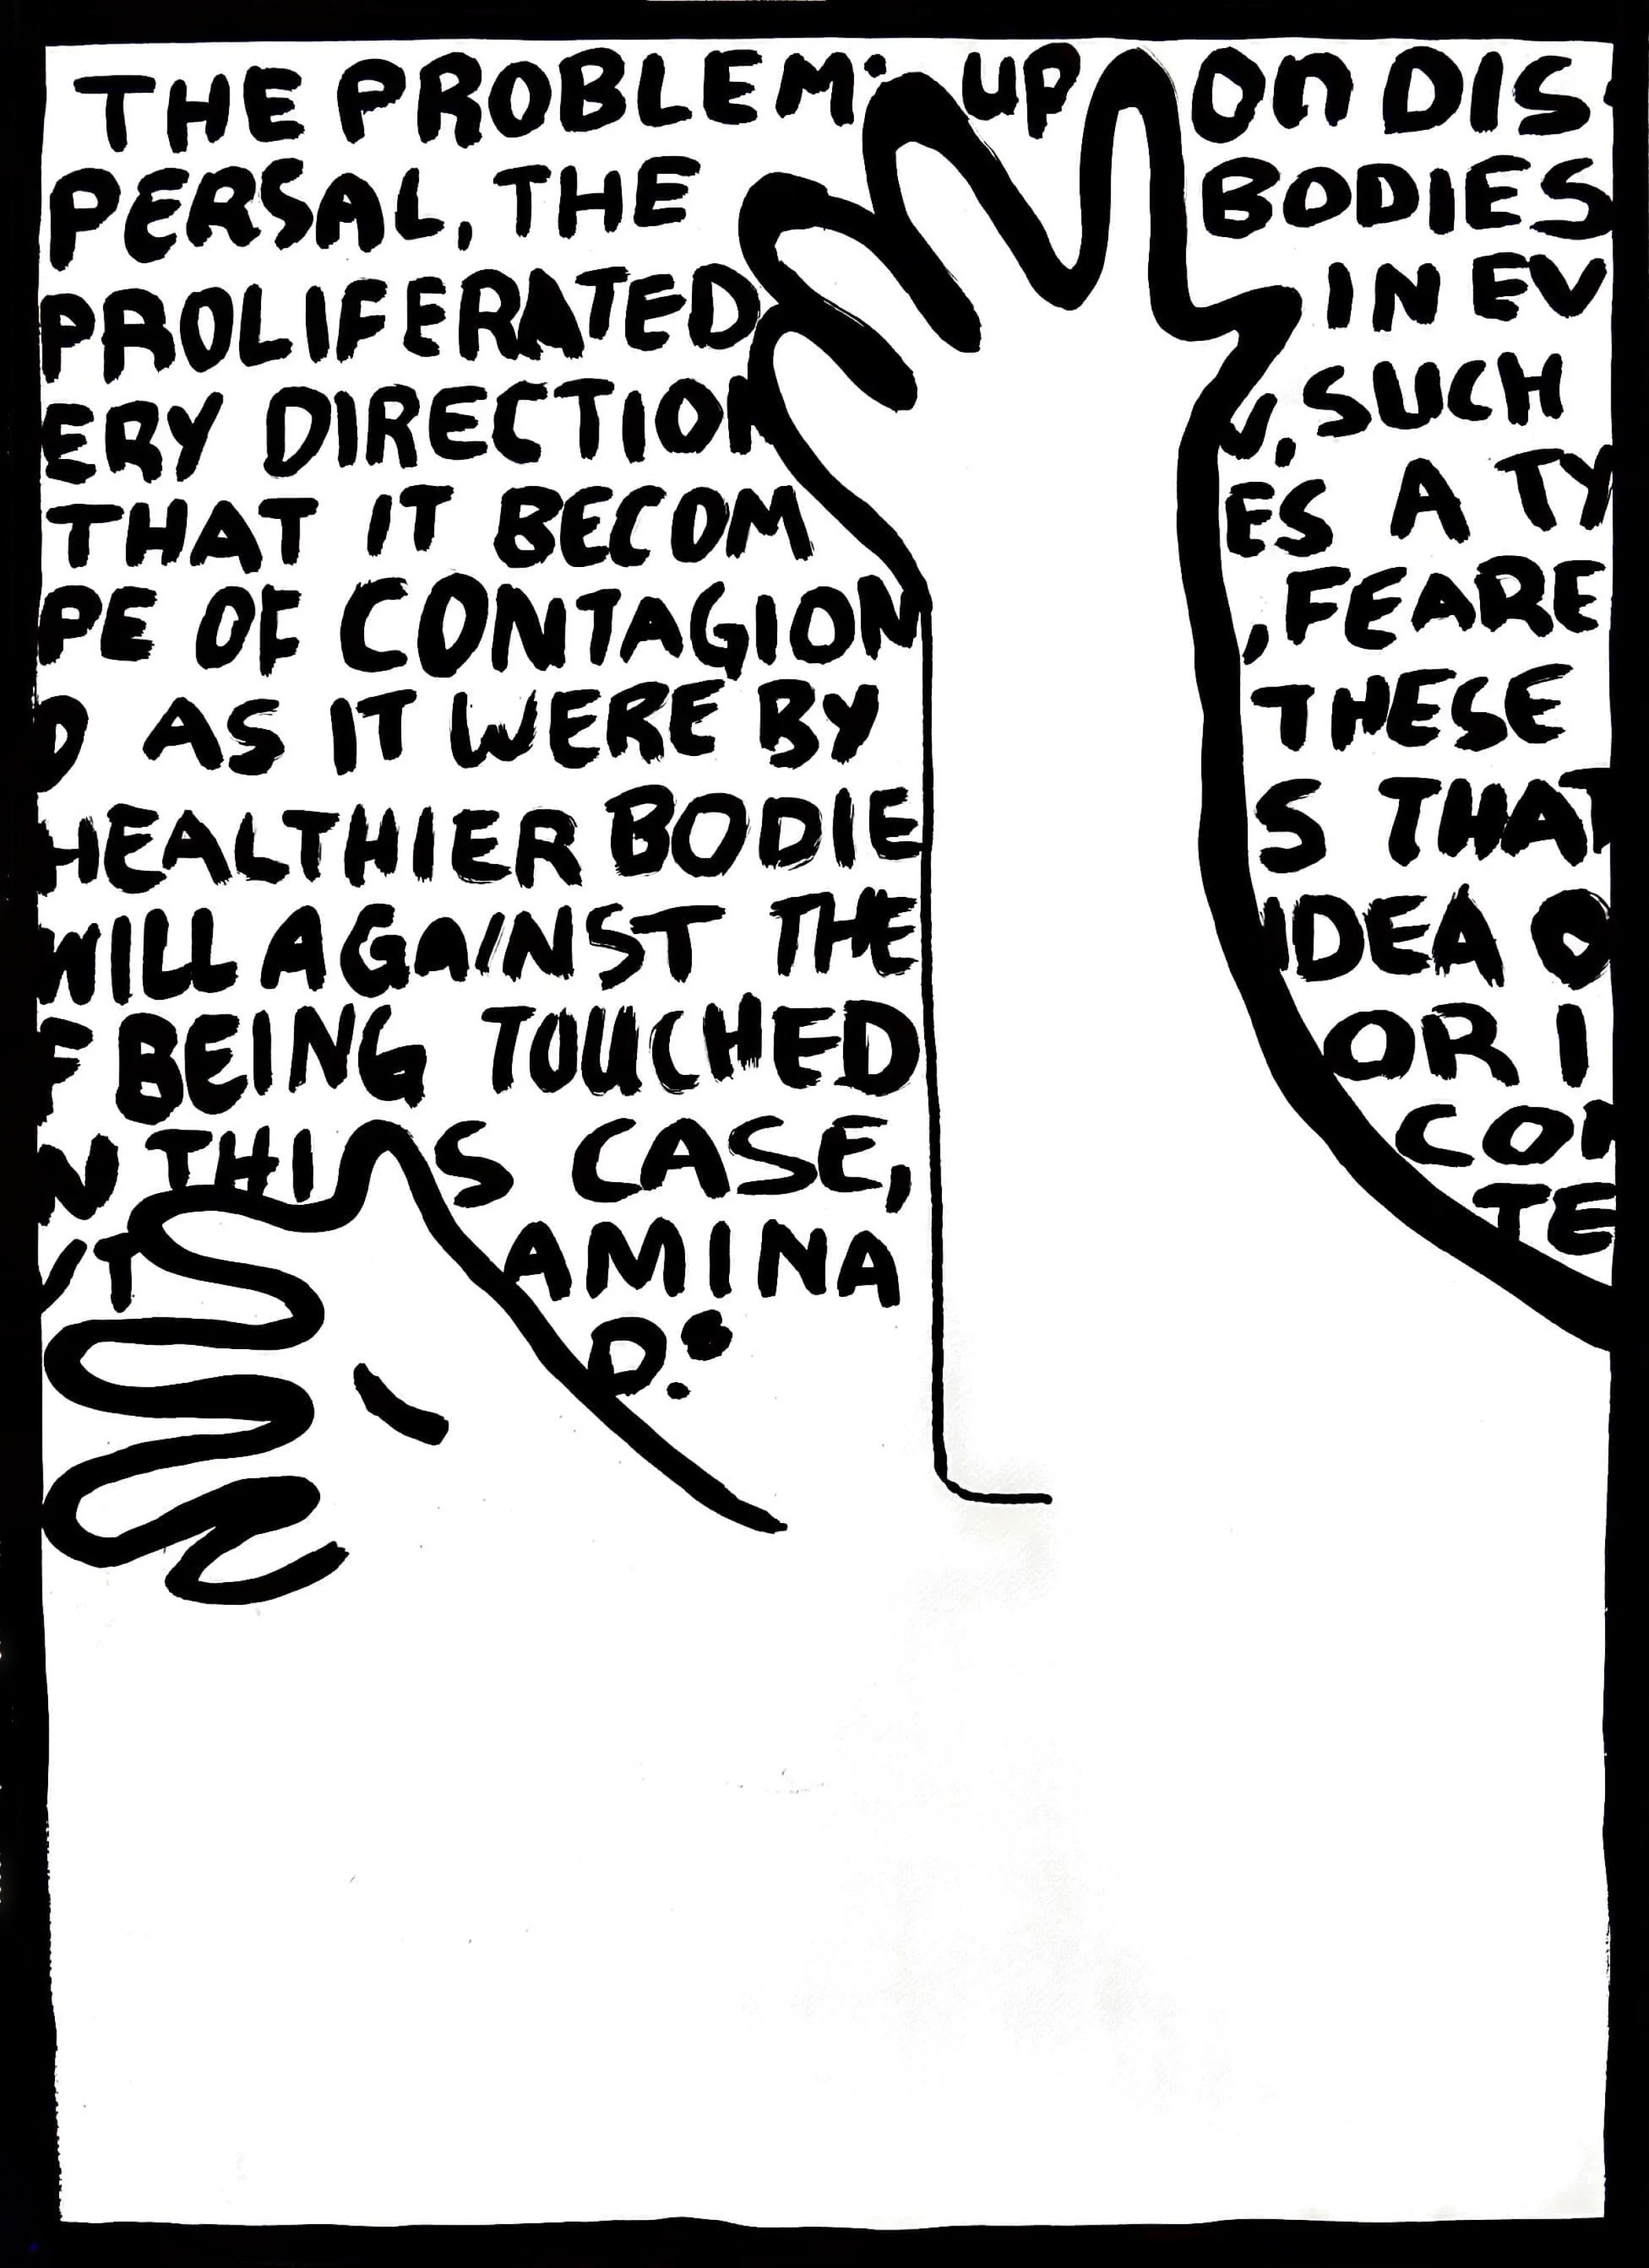 THE PROBLEM: UPON DIS
PERSAL, THE BODIES
PROLIFERATED IN EV
ERY DIRECTION, SUCH
THAT IT BECOMES A TY
PE OF CONTAGION, FEARE
D AS IT WERE BY THESE
HEALTHIER BODIES THAT
WILL AGAINST THE IDEA O
F BEING TOUCHED OR I
N THIS CASE, CON
T AMINA TE
D.